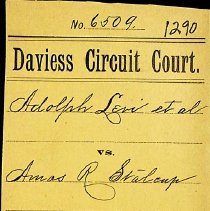 No. 6509. 1290
Daviess Circuit Court.
Adolph Levi et al
vs.
Amos R Stalcup